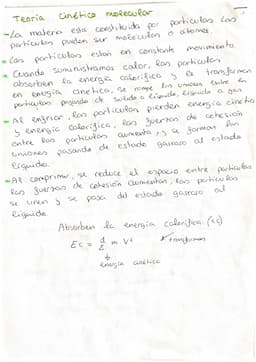 Teoria cinética molecular
-La materia esta constituida por particulas Las
particulas pueden ser moleculas o átomos
Las particulas estan en constante movimiento.
Cuando suministramos calor, las particulas
absorben la energia calorifica y la transforman
en energia cinetica, se rompe las uniones entre las
particulas pasando de solido a liquido, liquido a gas
Al enfriar, las particulas pierden energia cinetica
y energia calorifica, las fuerzas de cohesión
entre las particulas aumenta y se forman las
uniones pasando de estado gaseoso al estado
liquido.
Al comprimir, se reduce el espacio entre particulas
las fuerzas de cohesión aumentan, las particulas
se unen y se pasa del estado gaseoso al
liquido
Absorben la energia calorifica
Ec = m. V² transforman
energia cinética